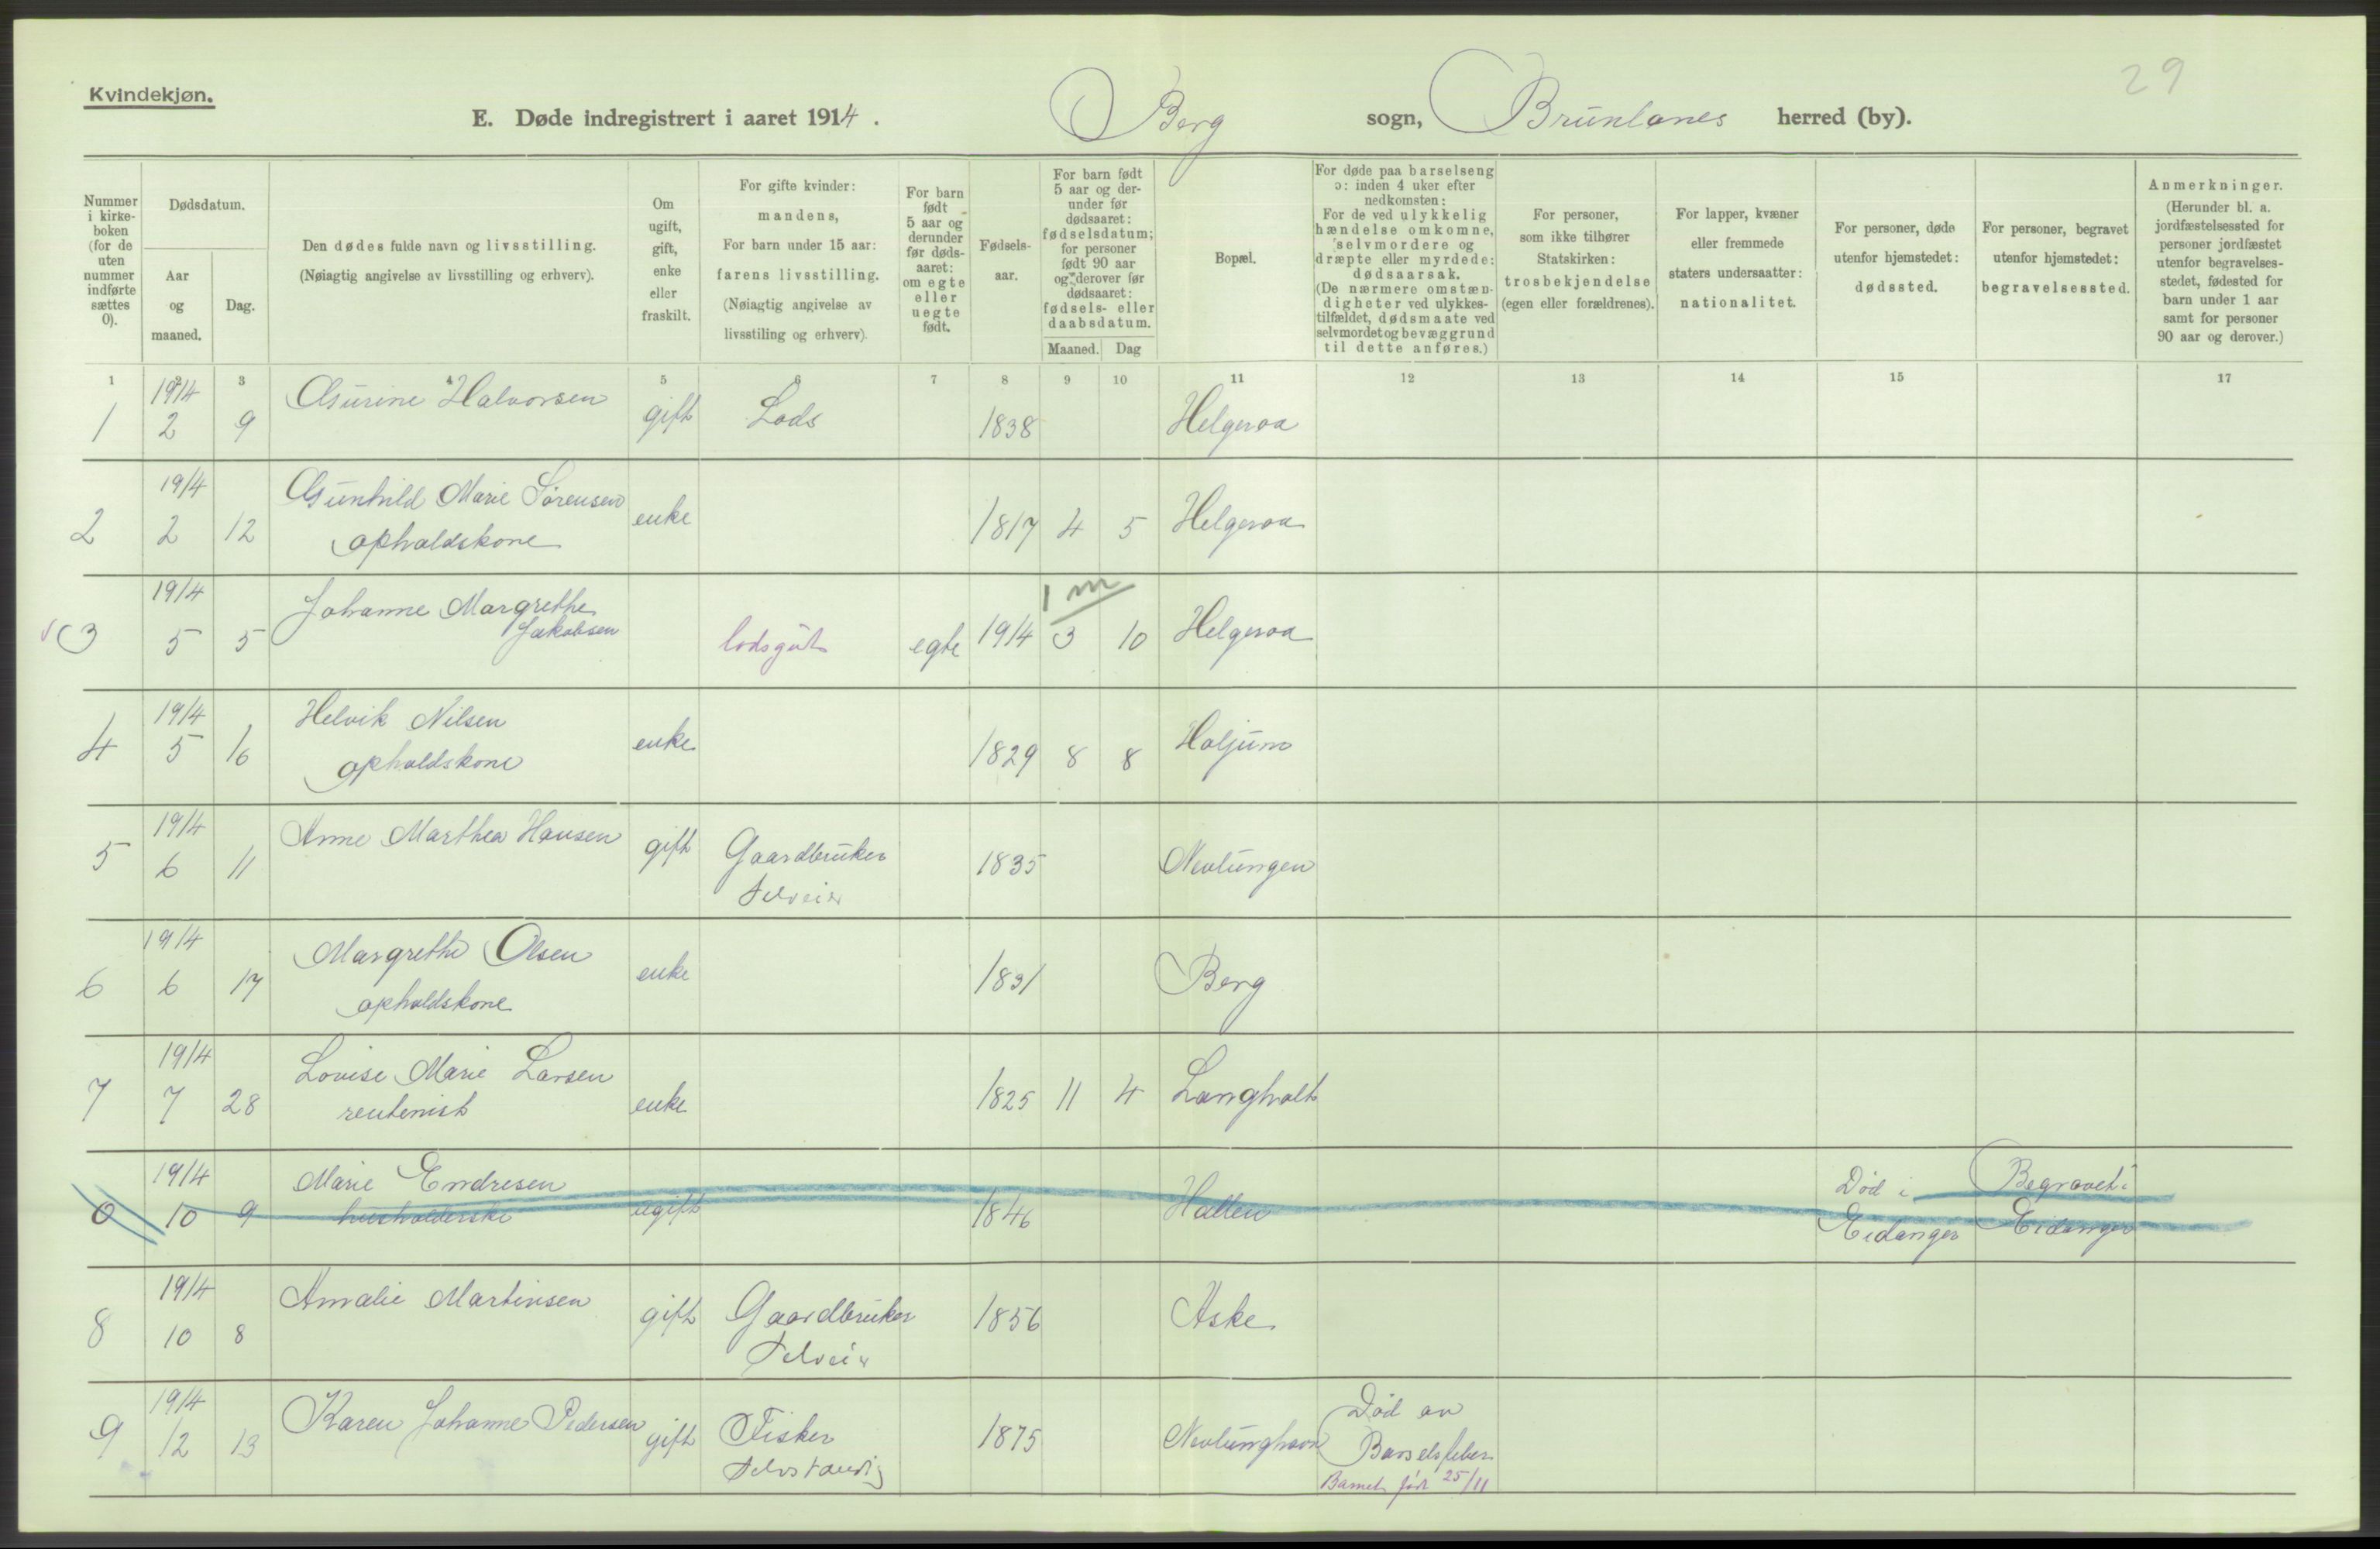 29
Kvindekjøn.
E. Døde indregistrert i aaret 1914. Berg sogn, Brunlanes herred (by).
Nummer i kirke-boken (for de uten nummer indførte sættes 0).
Dødsdatum.
Aar og maaned.
Dag.
Den dødes fulde navn og livsstilling.
(Nøiagtig angivelse av livsstilling og erhverv).
Om ugift, gift, enke eller fraskilt.
For gifte kvinder: mandens,
For barn under 15 aar: farens livsstilling.
(Nøiagtig angivelse av livsstiling og erhverv).
For barn født 5 aar og derunder før døds-aaret: om egte eller uegte født.
Fødsels-aar.
For barn født 5 aar og der-under før dødsaaret: fødselsdatum; for personer født 90 aar og derover før dødsaaret: fødsels- eller daabsdatum.
Maaned. Dag
Bopæl.
For døde paa barselseng ɔ: inden 4 uker efter nedkomsten:
For de ved ulykkelig hændelse omkomne, selvmordere og dræpte eller myrdede: dødsaarsak.
(De nærmere omstæn-digheter ved ulykkes-tilfældet, dødsmaate ved selvmordet og bevæggrund til dette anføres.)
For personer, som ikke tilhører Statskirken: trosbekjendelse (egen eller forældrenes).
For lapper, kvæner eller fremmede staters undersaatter: nationalitet.
For personer, døde utenfor hjemstedet: dødssted.
For personer, begravet utenfor hjemstedet: begravelsessted.
Anmerkninger.
(Herunder bl. a. jordfæstelsessted for personer jordfæstet utenfor begravelses-stedet, fødested for barn under 1 aar samt for personer 90 aar og derover.)
1 2 3 4 5 6 7 8 9 10 11 12 13 14 15 17
1 1914 2 9 Gurine Halvorsen gift Lods 1838 Helgeroa
2 1914 2 12 Gunhild Marie Sørensen enke 1817 4 5 Helgeroa
opholdskone
1 m
3 1914 5 5 Johanne Margrethe Jakobsen lodsgut egte 1914 3 10 Helgeroa
4 1914 5 16 Helvik Nilsen enke 1829 8 8 Haljum
opholdskone
5 1914 6 11 Anne Marthea Hansen gift Gaardbruker 1835 Nevlungen
Selveier
6 1914 6 17 Margrethe Olsen enke 1831 Berg
opholdskone
7 1914 7 28 Lovise Marie Larsen enke 1825 11 4 Langholt
rentenist
0 1914 10 9 Marie Endresen ugift 1846 Hallen Død i Eidanger Begravet i Eidanger
husholderske
8 1914 10 8 Amalie Martinsen gift Gaardbruker 1856 Aske
Selveier
9 1914 12 13 Karen Johanne Pedersen gift Fisker 1875 Nevlunghavn Død av
Selvstændig Barselsfeber
Barnet født 25/11